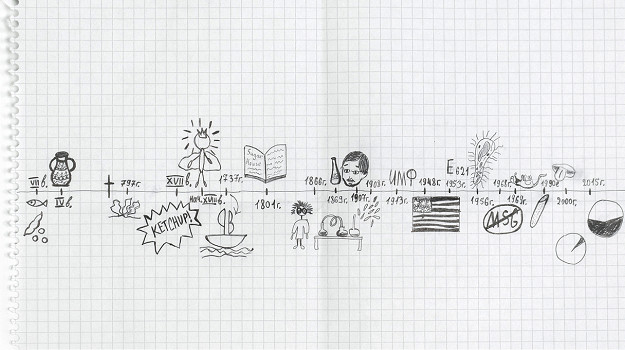 VII в.
IV в.
797г.
KETCHUP!
XVII в.
нач. XVIII в.
1737г.
1801г.
1866г.
1869г.
1909г.
1907г.
ИМФ
1913г.
1948г.
E621
1953г.
1956г.
1968г.
MSG
1969г.
2000г.
2015г.